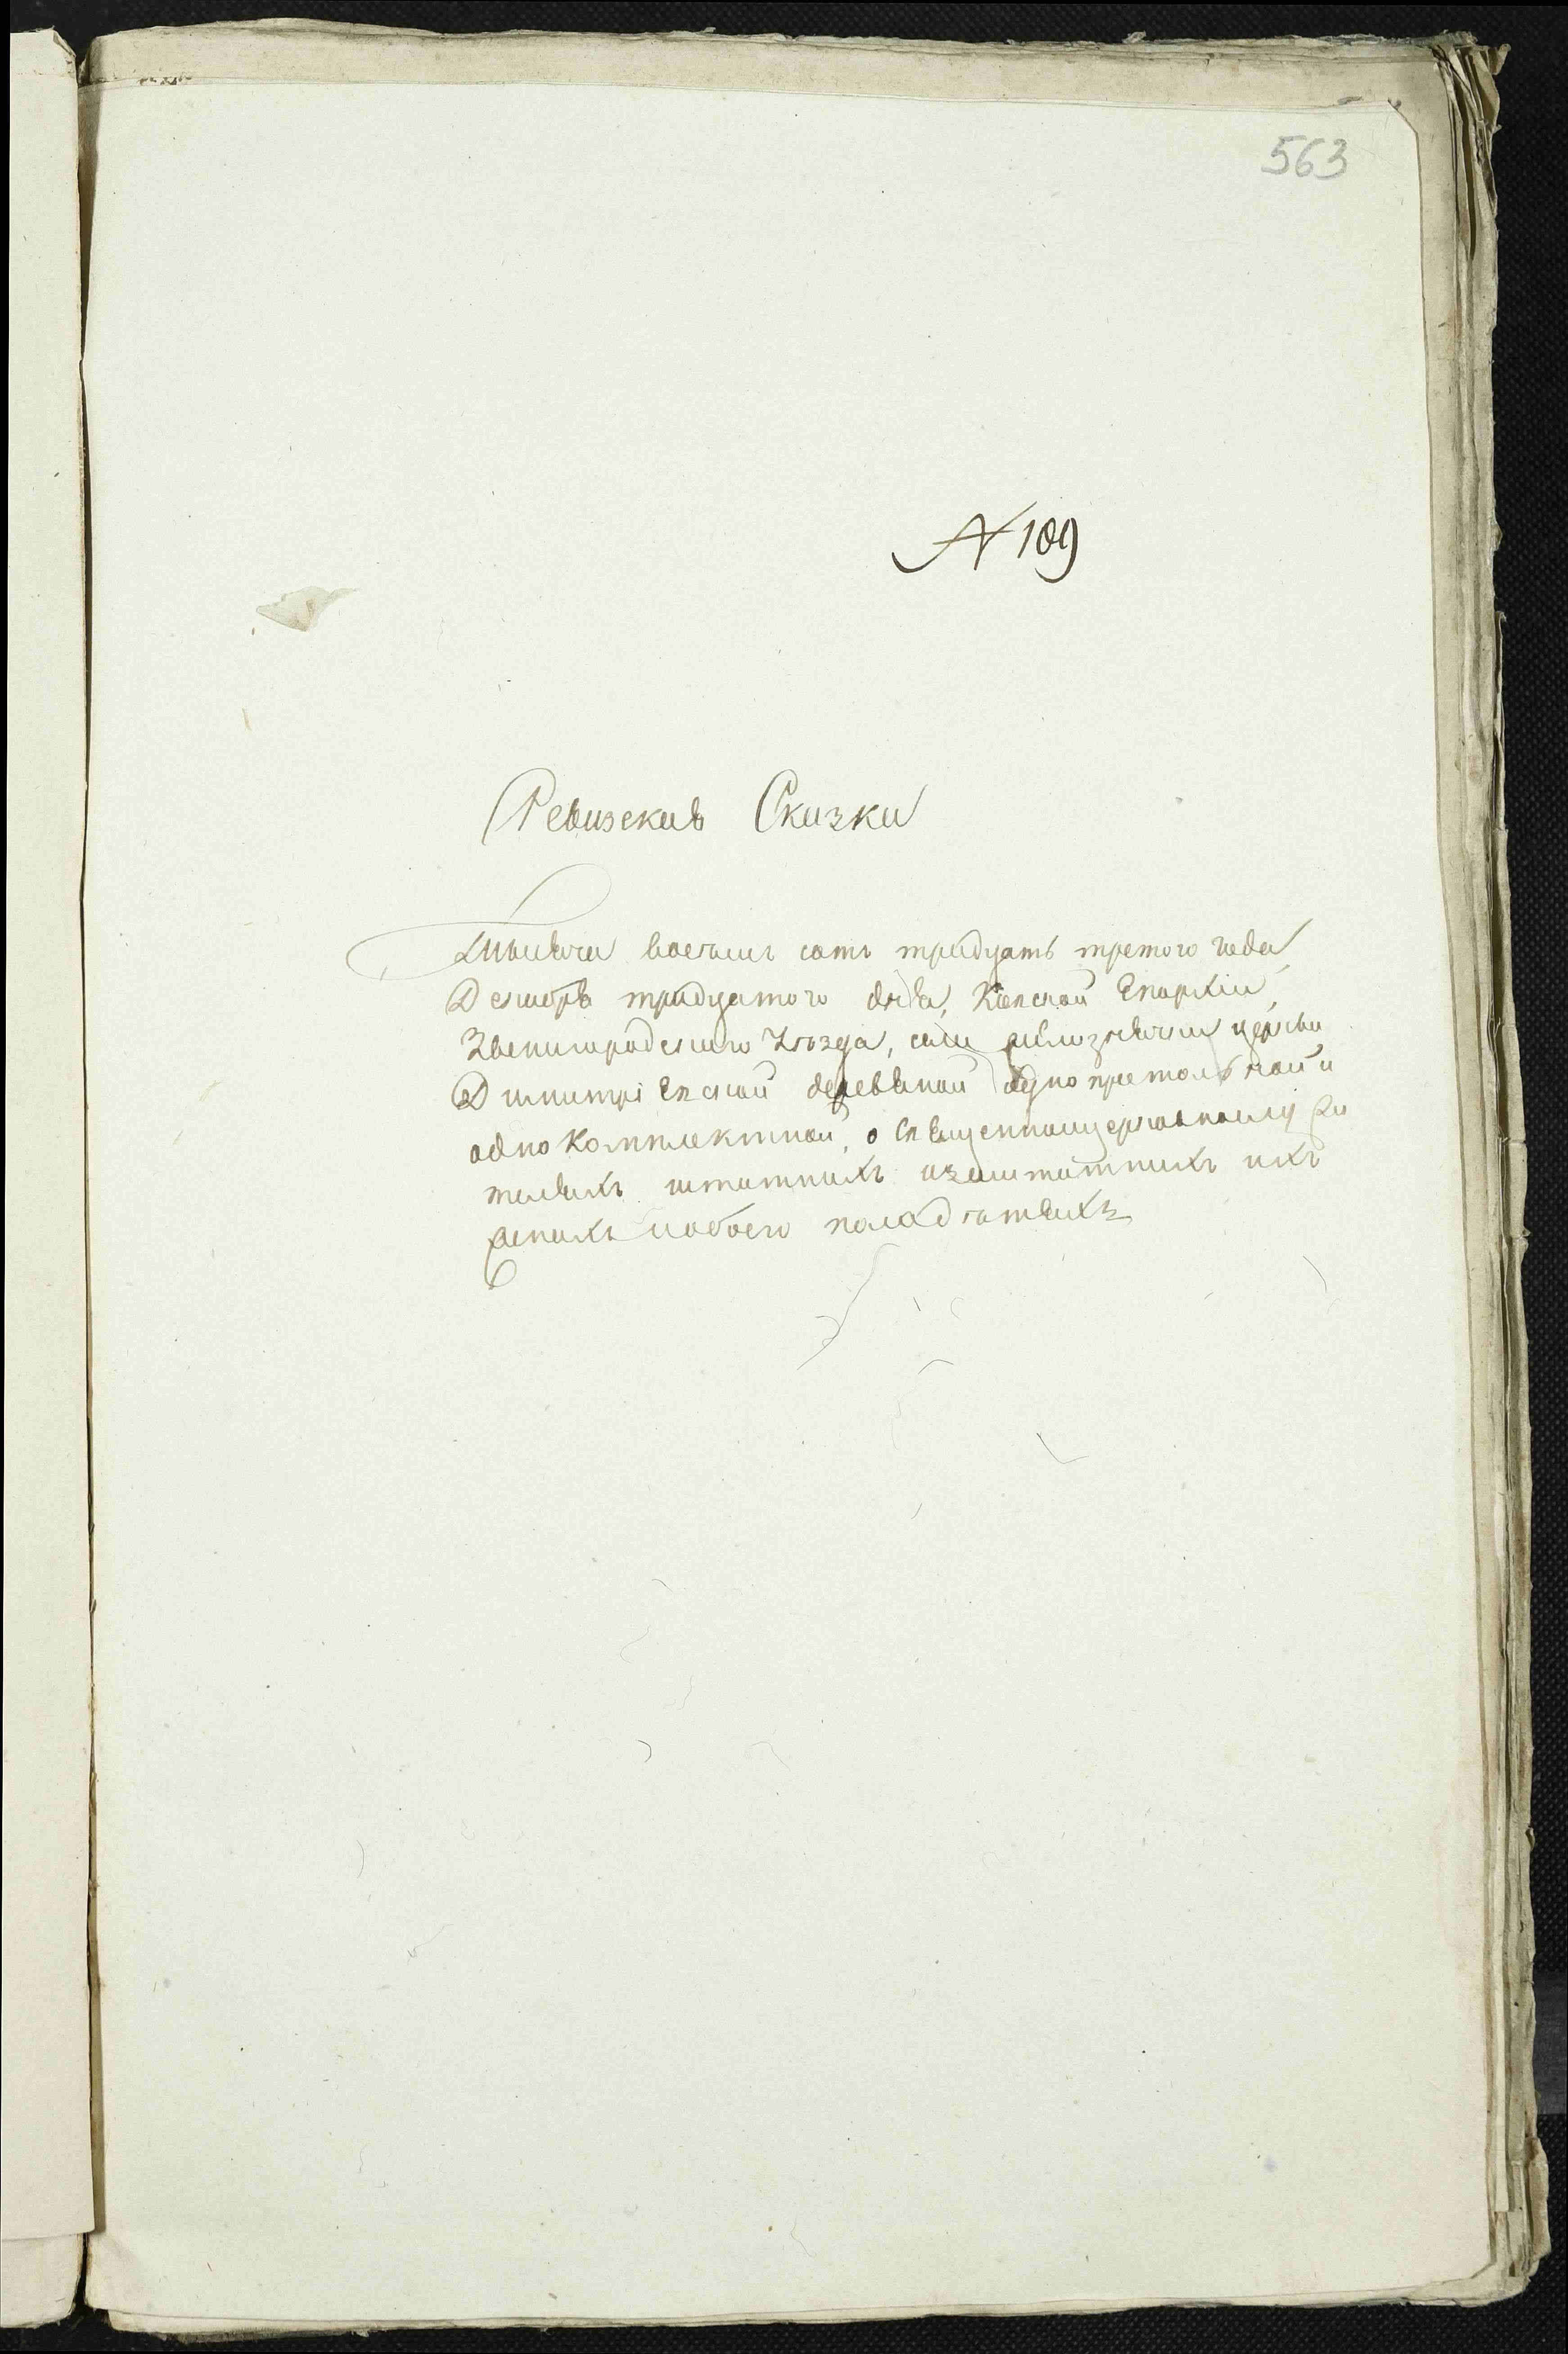 563
№ 109
Ревизскія Сказки
Тысяча восемъ сотъ тридцать третого года
Декабря тридцатого дня, Кіевской Епархіи,
Звенигородского Уезда, села церкви
Димитріевской деревяной однопрестольной и
однокомплектной, о священноцерковнослужи
теляхъ штатныхъ изаштатныхъ ихъ
женахъ иобоего пола дѣтяхъ